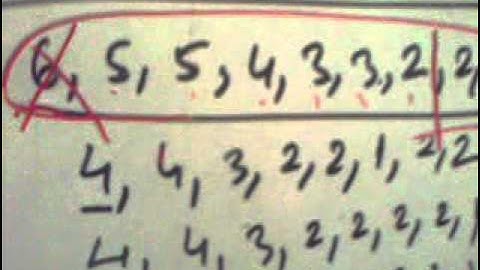 6, 5, 5, 4, 3, 3, 2, 2,
4, 4, 3, 2, 2, 1, 2, 2
4, 4, 3, 2, 2, 2, 2,